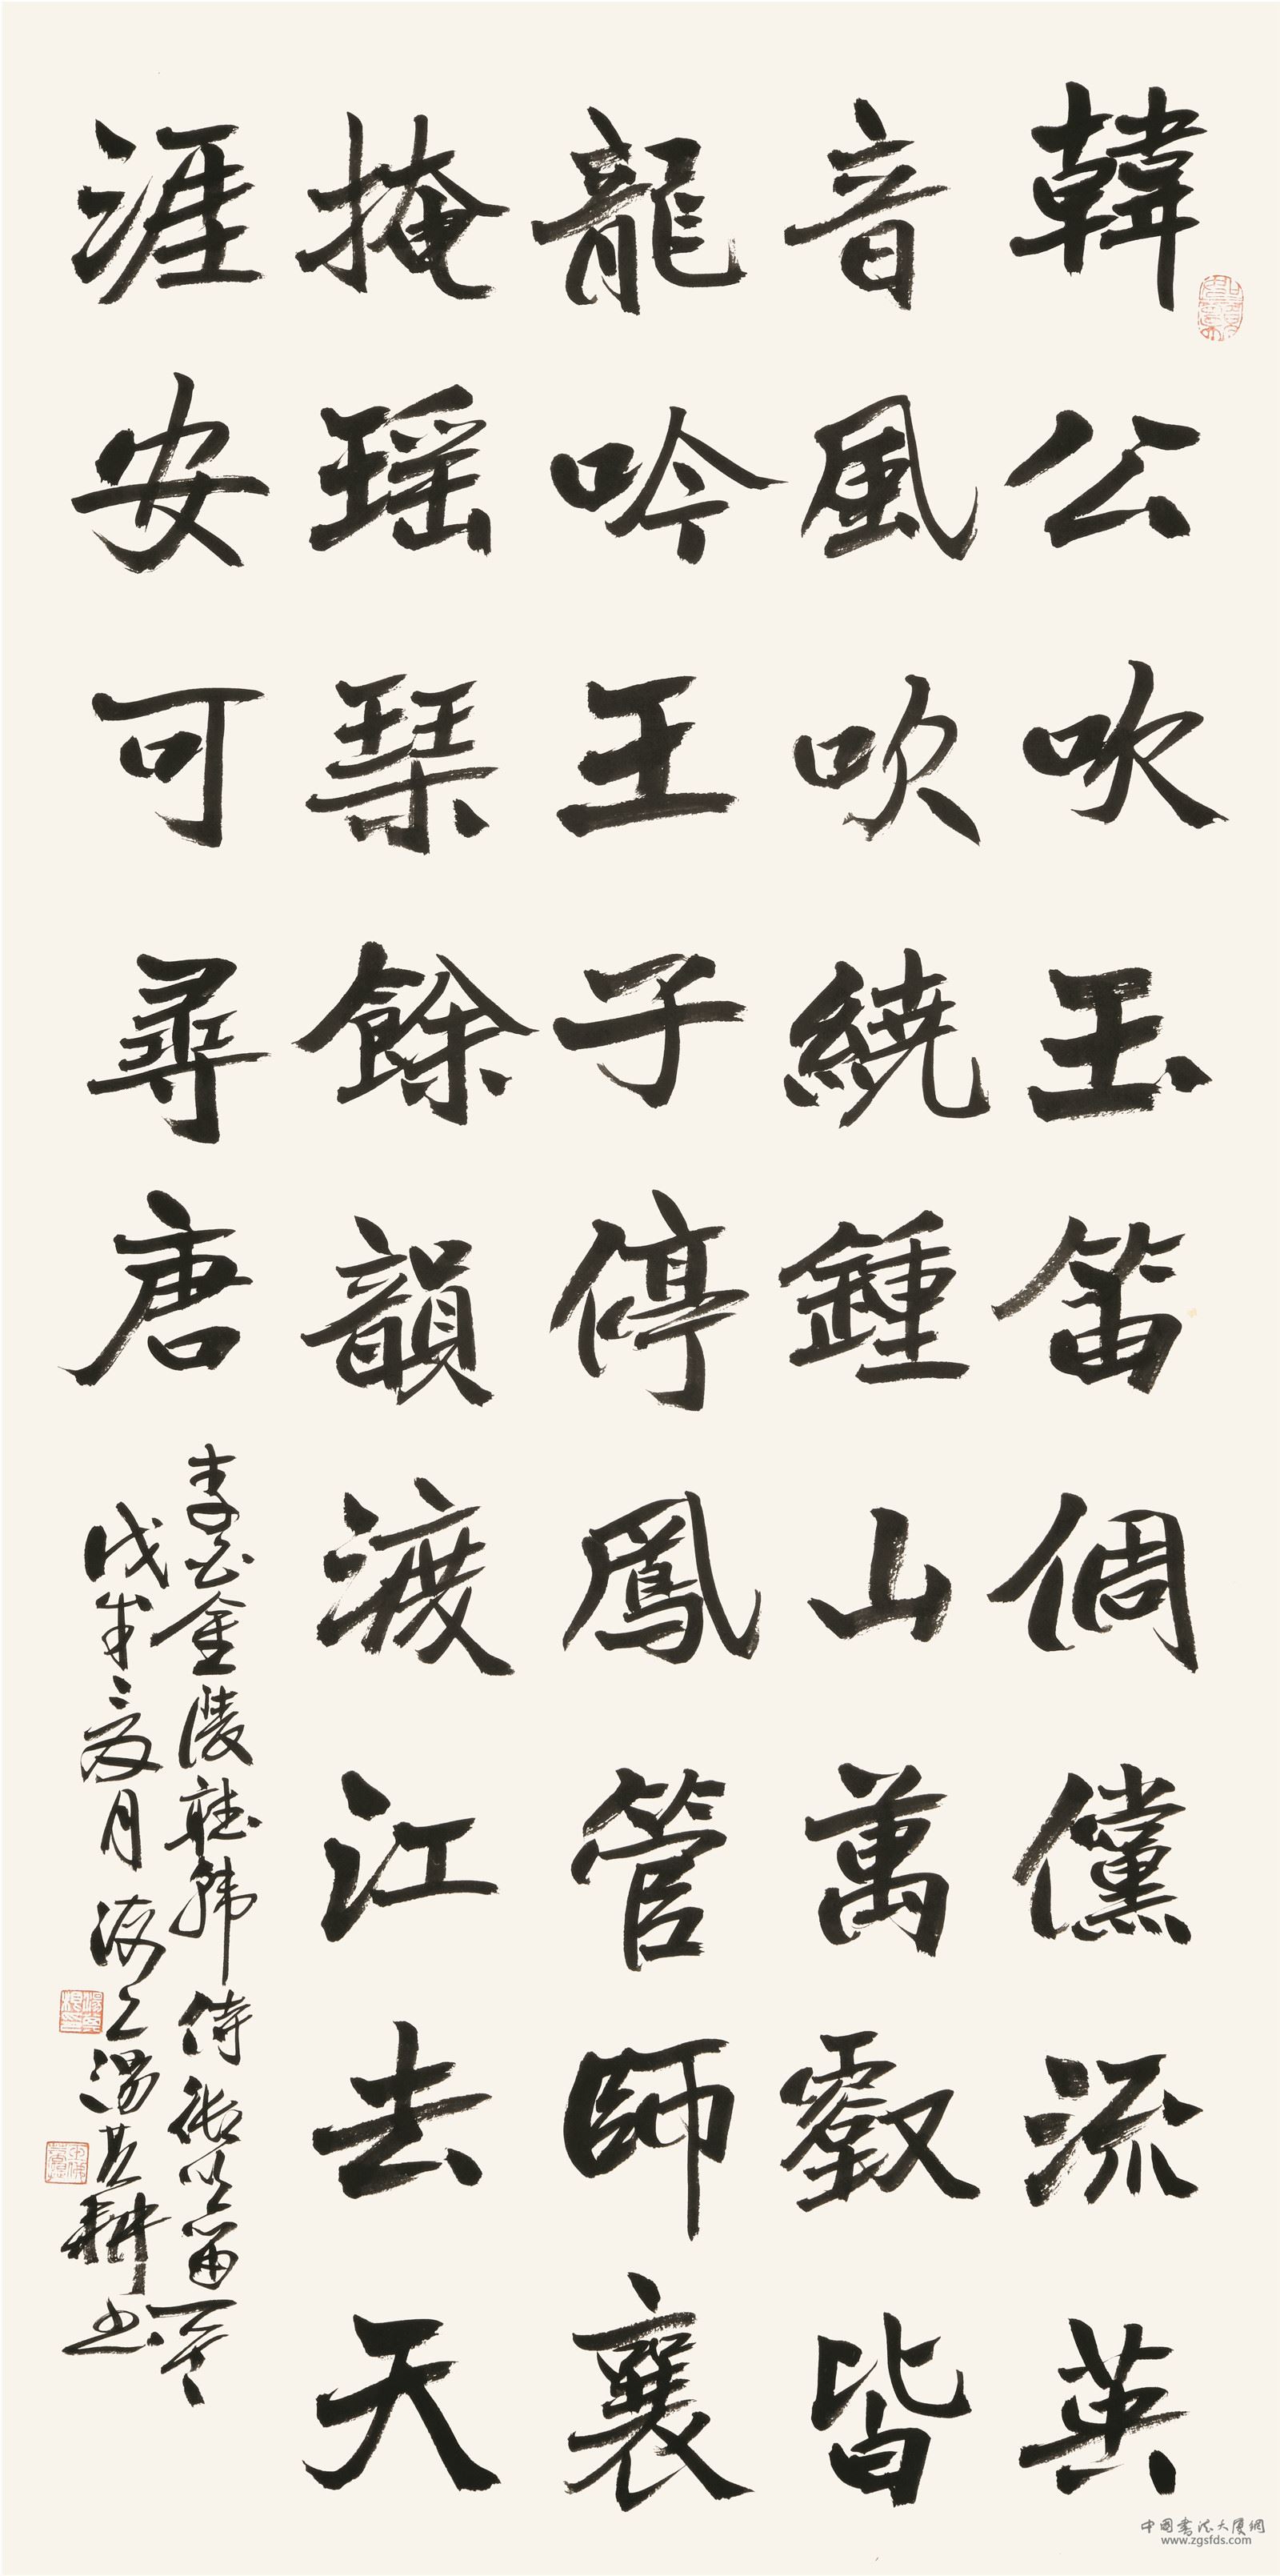 韓公吹玉笛倜儻流英
音風吹繞鍾山萬壑皆
龍吟王子停鳳管師襄
掩瑶琴餘韻渡江去天
涯安可尋唐
李白金陵聽韓侍御吹笛
戊月海上湯其耕書
中國書法大厦網
www.zgsfds.com